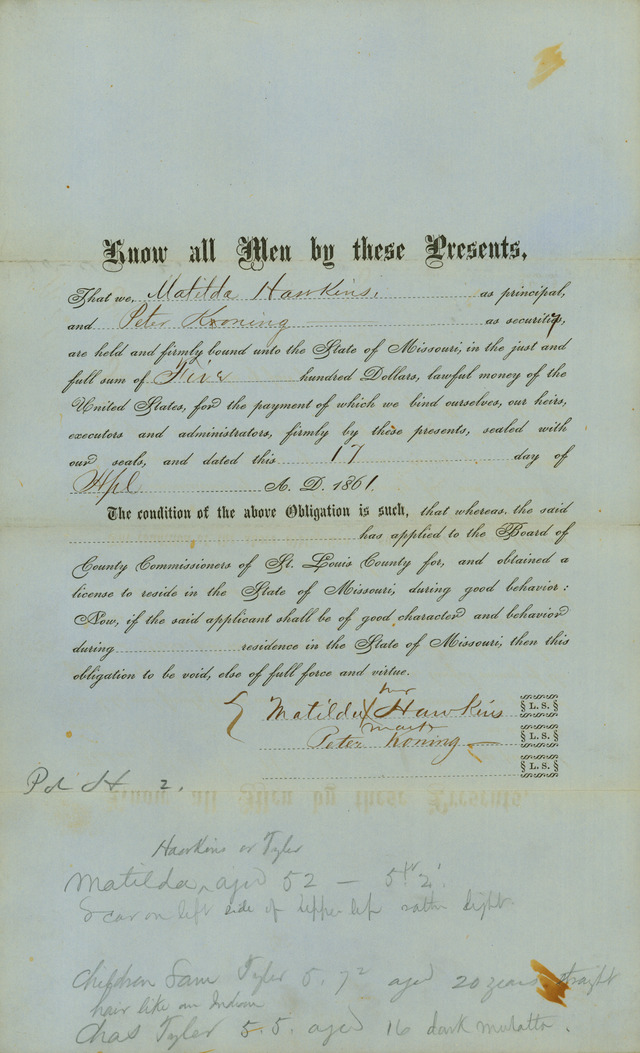 Know all Men by these Presents,
That we, Matilda Hawkins, as principal,
and Peter Kroning as security,
are held and firmly bound unto the State of Missouri, in the just and
full sum of Five hundred Dollars, lawful money of the
United States, for the payment of which we bind ourselves, our heirs,
executors and administrators, firmly by these presents, sealed with
our seals, and dated this 17 day of
Apl A. D. 1861.
The condition of the above Obligation is such, that whereas, the said
has applied to the Board of
County Commissioners of St. Louis County for, and obtained a
license to reside in the State of Missouri, during good behavior:
Now, if the said applicant shall be of good character and behavior
during residence in the State of Missouri, then this
obligation to be void, else of full force and virtue.
her
Matilda X Hawkins § L. S. §
mark
Peter Koning § L. S. §
§ L. S. §
2.
Hawkins or Tyler
Matilda, aged 52 — 5ft 2'
Scar on left side of upper lip rather light
Children Sam Tyler 5. 7½ aged 20 years straight
hair like an Indian
Chas Tyler 5. 5. aged 16 dark mulatto.